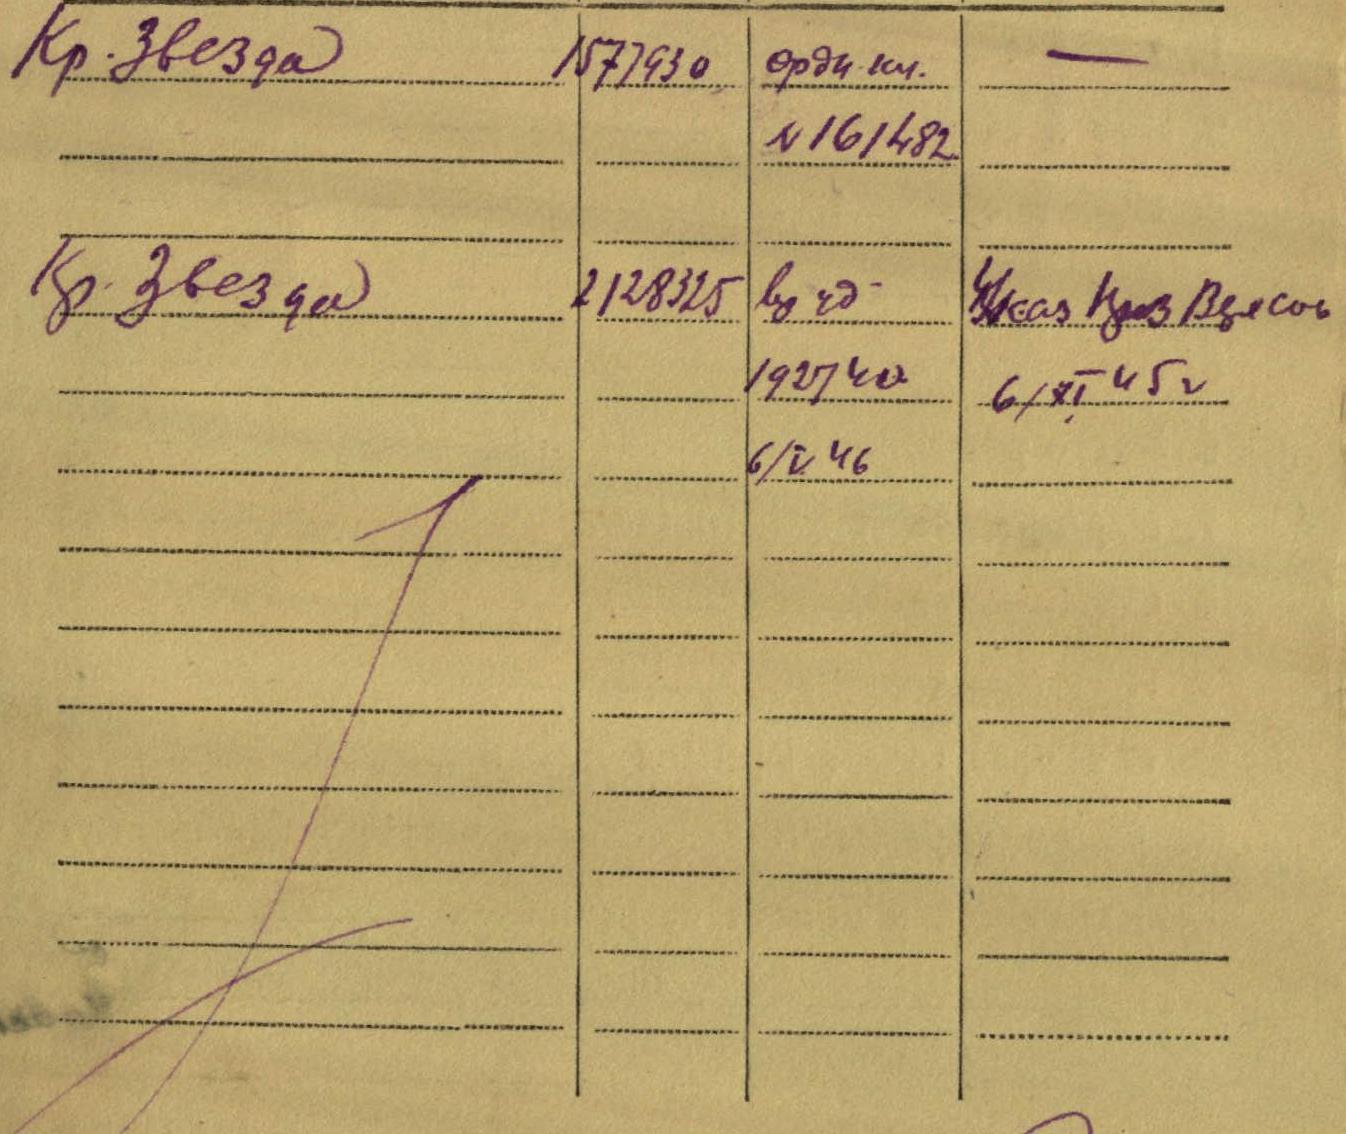 Кр. Звезда 1577930 орд. кн. —
№ 161482
Кр. Звезда 2128325 вр уд Указ През
192740 6/XI 45 г
6/V 46